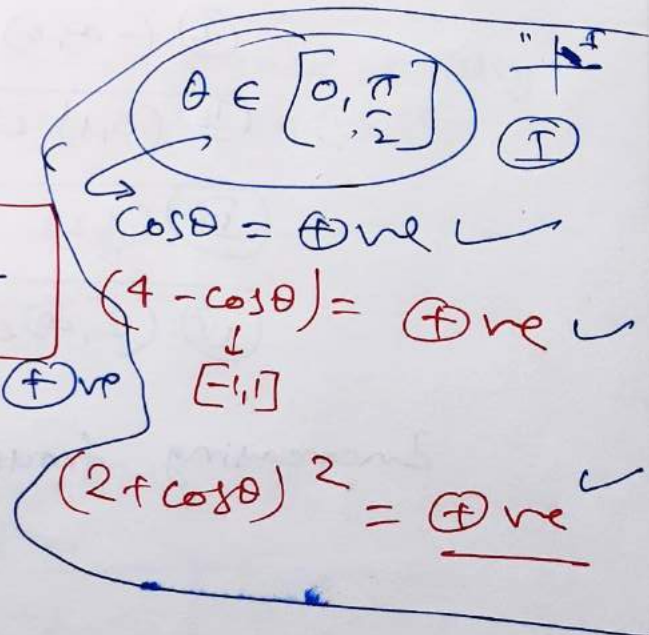 θ ∈ [0, π/2]
I
cosθ = ⊕ve ✓
(4 - cosθ) = ⊕ve ✓
↓
[-1,1]
⊕ve
(2+cosθ)² = ⊕ve ✓